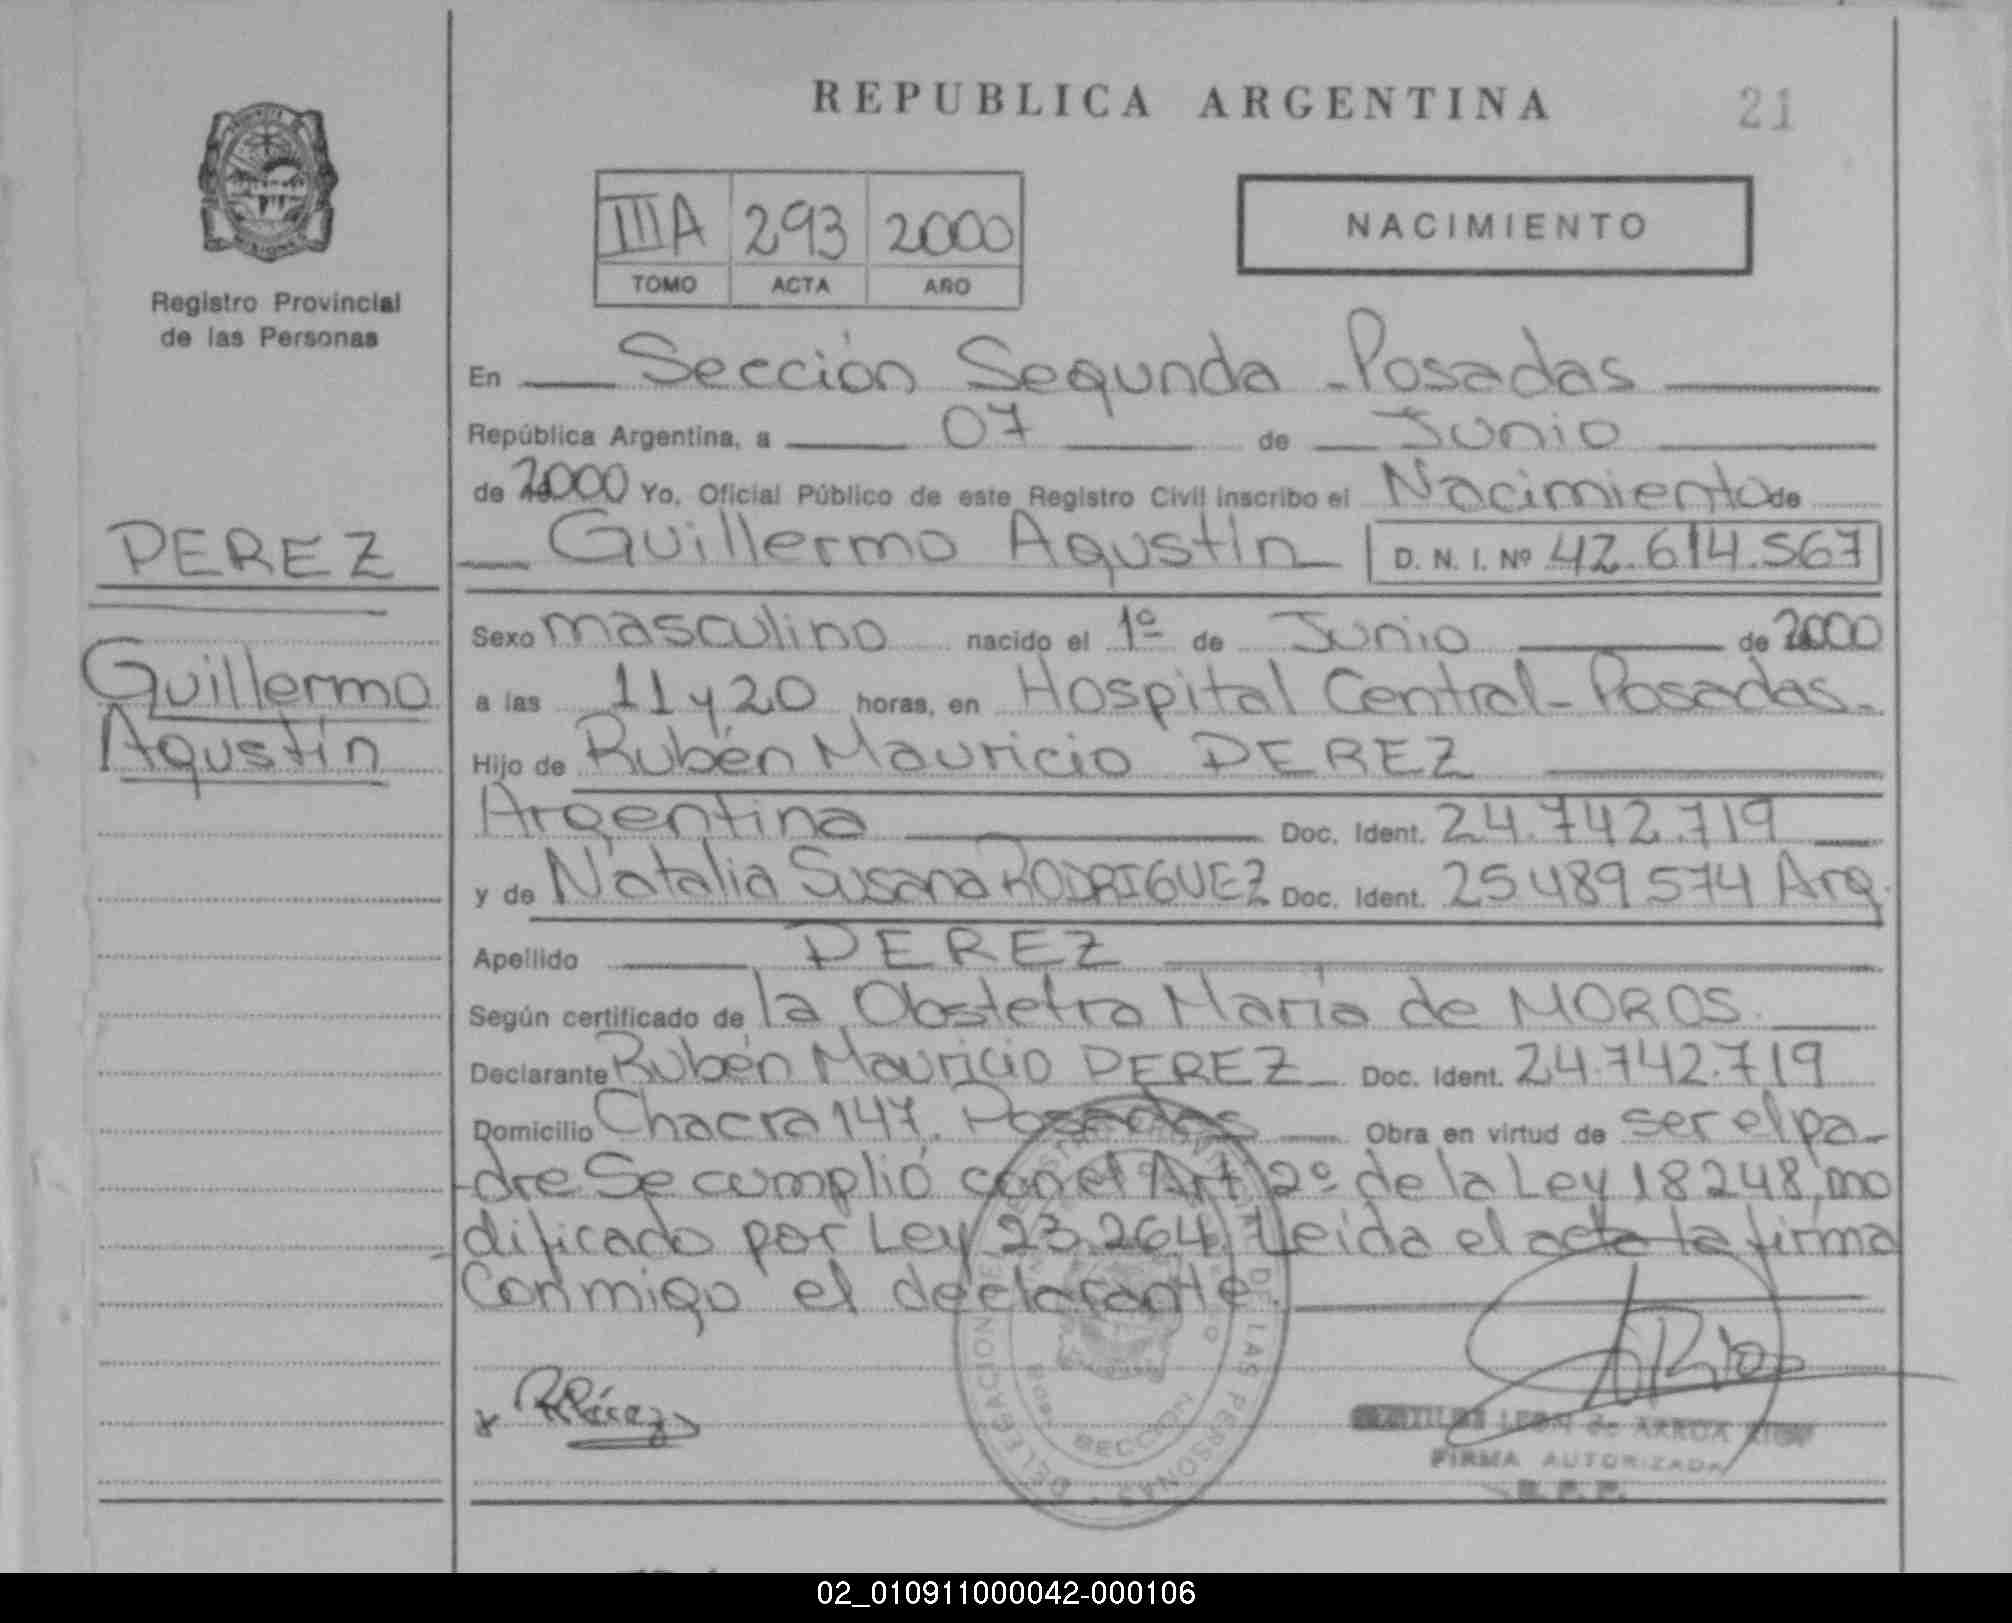 REPUBLICA ARGENTINA 21
Registro Provincial
de las Personas
IIIA 293 2000
TOMO ACTA AÑO
NACIMIENTO
En Sección Segunda - Posadas
República Argentina, a 07 de Junio
de 2000 Yo, Oficial Público de este Registro Civil inscribo el Nacimiento de
Guillermo Agustín D. N. I. Nº 42.614.567
PEREZ
Guillermo
Agustín
Sexo masculino nacido el 1º de Junio de 2000
a las 11 y 20 horas, en Hospital Central - Posadas.
Hijo de Rubén Mauricio PEREZ
Argentina Doc. Ident. 24.742.719
y de Natalia Susana RODRIGUEZ Doc. Ident. 25489574 Arg.
Apellido PEREZ
Según certificado de la Obstetra María de MOROS.
Declarante Rubén Mauricio PEREZ Doc. Ident. 24.742.719
Domicilio Chacra 147. Posadas Obra en virtud de ser el pa-
dre Se cumplió con el Art 2º de la Ley 18248, mo
dificado por Ley 23.264, Leida el acta la firma
Conmigo el declarante.
R Pérez
LEON de ARROA
FIRMA AUTORIZADA
R. P. P.
DELEGACION DE LAS PERSONAS
SECCION
02_010911000042-000106